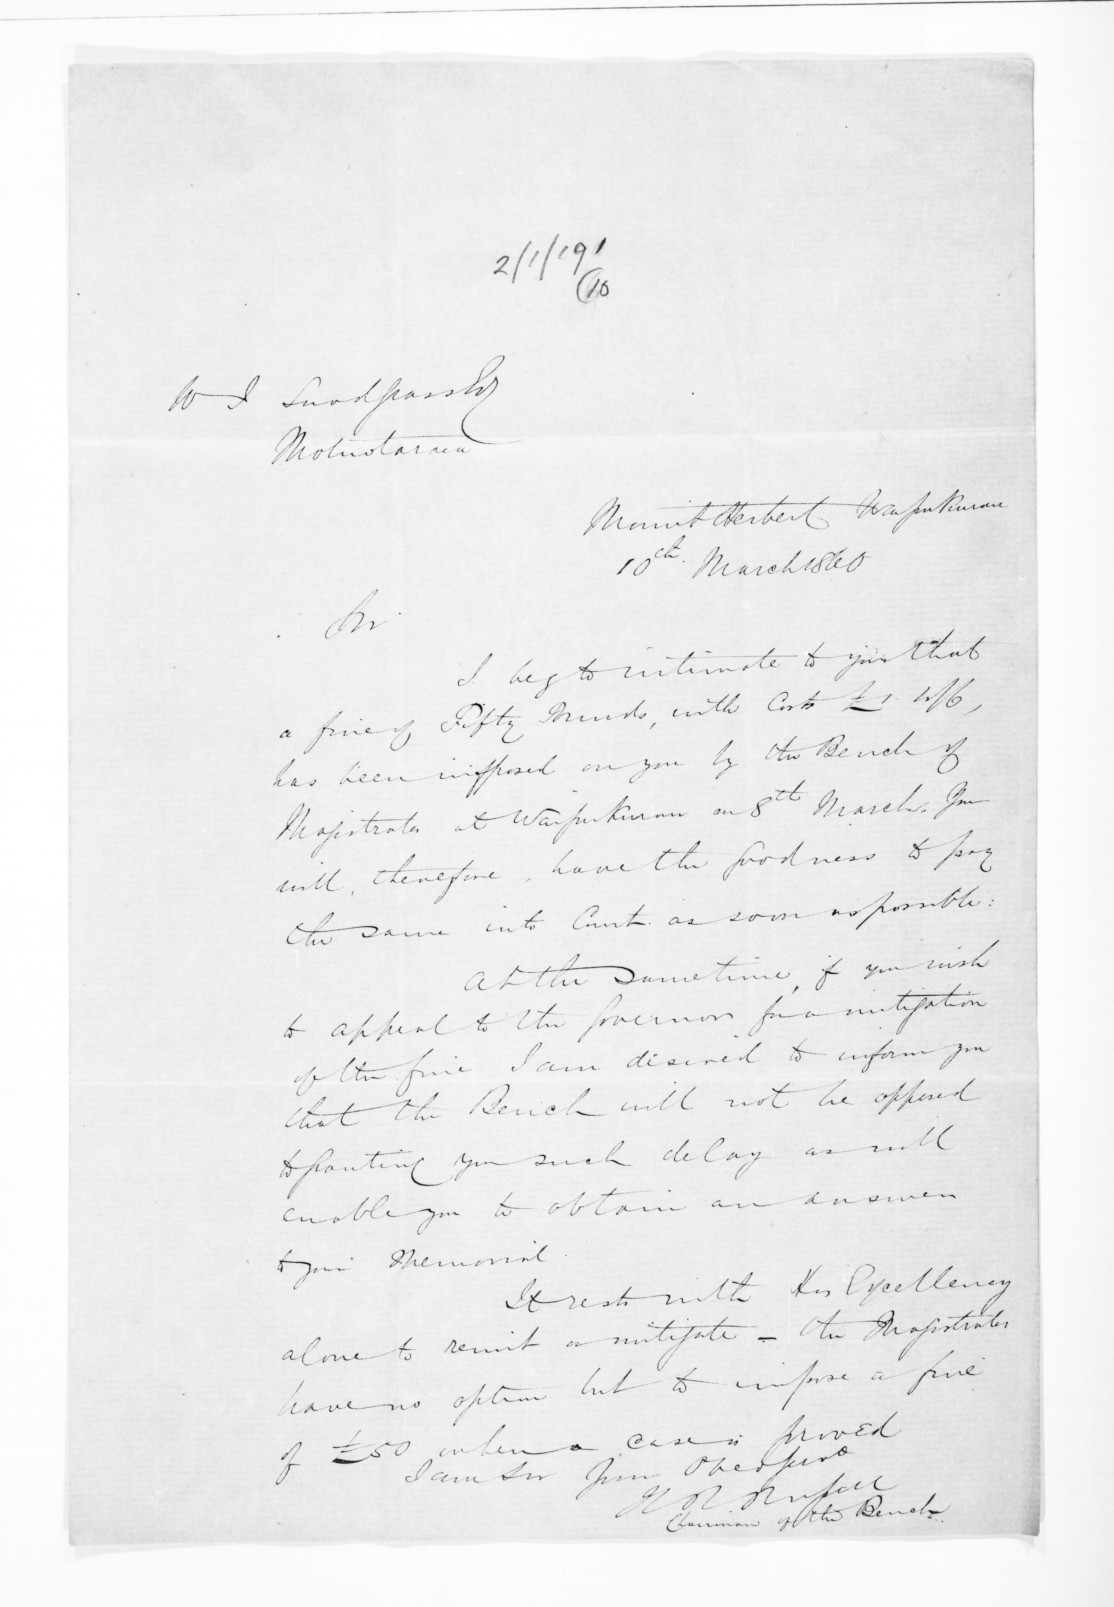 2/1/191
(10
W J Snodgrass Esq
Motuotaraia
Mount Herbert Waipukurau
10th March 1860
Sir
I beg to intimate to you that
a fine of Fifty Pounds, with Costs £1. 4/6,
has been imposed on you by the Bench of
Magistrates at Waipukurau on 8th March. You
will, therefore, have the goodness to pay
the same into Court as soon as possible:
At the same time, if you wish
to appeal to the Governor for a mitigation
of the fine I am desired to inform you
that the Bench will not be opposed
to granting you such delay as will
enable you to obtain an answer
to your Memorial.
It rests with His Excellency
alone to remit or mitigate – the Magistrates
have no option but to impose a fine
of £50 when a case is proved
I am Sir Your Obed Servt
H R Russell
Chairman of the Bench